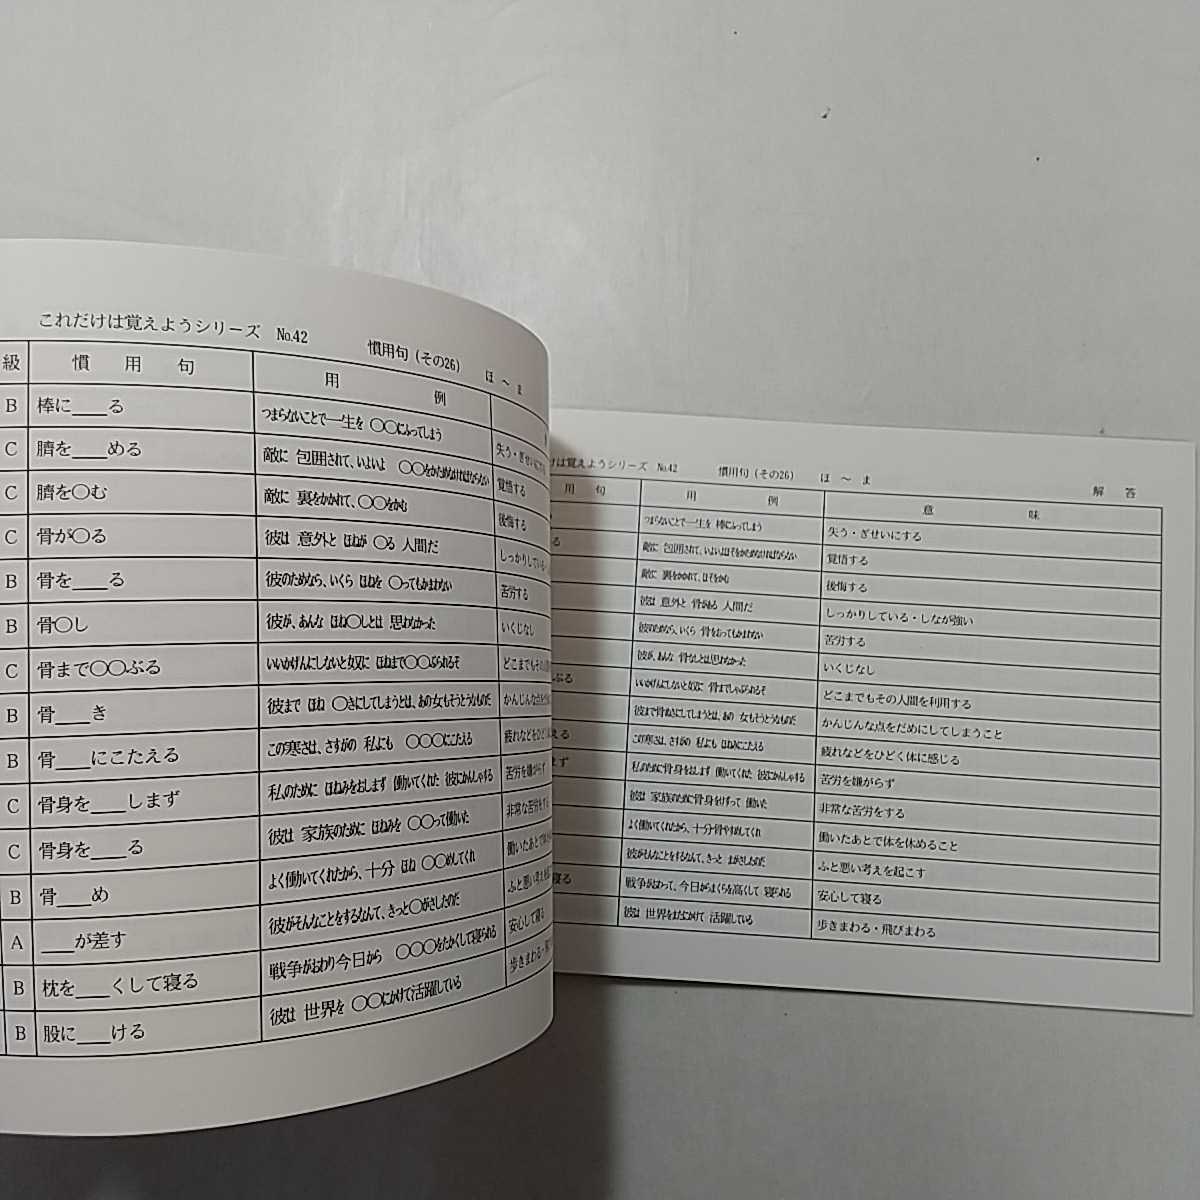 これだけは覚えようシリーズ №42 慣用句（その26） ほ～ま
級 慣用句 用例
B 棒に＿＿る つまらないことで一生を 〇〇にふってしまう 失う・ぎせいにする
C 臍を＿＿める 敵に 包囲されて、いよいよ 〇〇をかためなければならない 覚悟する
C 臍を〇む 敵に 裏をかかれて、〇〇をかむ 後悔する
C 骨が〇る 彼は 意外と ほねが 〇る 人間だ しっかりしている・
B 骨を＿＿る 彼のためなら、いくら ほねを 〇ってもかまわない 苦労する
B 骨〇し 彼が、あんな ほね〇しとは 思わなかった いくじなし
C 骨まで〇〇ぶる いいかげんにしないと奴に ほねまで〇〇ぶられるぞ どこまでもその人間
B 骨＿＿き 彼まで ほね 〇きにしてしまうとは、あの女もそうとうなものだ かんじんな点を
B 骨＿＿にこたえる この寒さは、さすがの 私にも 〇〇〇にこたえる 疲れなどをひど
C 骨身を＿＿しまず 私のために ほねみをおしまず 働いてくれた 彼にかんしゃする 苦労を嫌がらず
C 骨身を＿＿る 彼は 家族のために ほねみを 〇〇って働いた 非常な苦労をする
B 骨＿＿め よく働いてくれたから、十分 ほね 〇〇めしてくれ 働いたあとで体
A ＿＿が差す 彼がそんなことをするなんて、きっと〇がさしたのだ ふと悪い考え
B 枕を＿＿くして寝る 戦争がおわり今日から 〇〇〇をたかくして寝られる 安心して寝る
B 股に＿＿ける 彼は 世界を 〇〇にかけて活躍している 歩きまわる・飛
けは覚えようシリーズ №42 慣用句（その26） ほ～ま 解答
用句 用例 意味
つまらないことで一生を 棒にふってしまう 失う・ぎせいにする
る 敵に 包囲されて、いよいよほぞをかためなければならない 覚悟する
敵に 裏をかかれて、ほぞをかむ 後悔する
彼は 意外と 骨がある 人間だ しっかりしている・しなが強い
彼のためなら、いくら 骨をおってもかまわない 苦労する
彼が、あんな 骨なしとは思わなかった いくじなし
ぶる いいかげんにしないと奴に 骨までしゃぶられるぞ どこまでもその人間を利用する
彼まで骨ぬきにしてしまうとは、あの 女もそうとうなものだ かんじんな点をだめにしてしまうこと
える この寒さは、さすがの 私にも ほねみにこたえる 疲れなどをひどく体に感じる
ず 私のために骨身をおしまず 働いてくれた 彼にかんしゃする 苦労を嫌がらず
彼は 家族のために骨身をけずって 働いた 非常な苦労をする
よく働いてくれたから、十分骨やすめしてくれ 働いたあとで体を休めること
彼がそんなことをするなんて、きっと まがさしたのだ ふと悪い考えを起こす
寝る 戦争がおわって、今日からまくらを高くして 寝られる 安心して寝る
彼は 世界をまたにかけて 活躍している 歩きまわる・飛びまわる